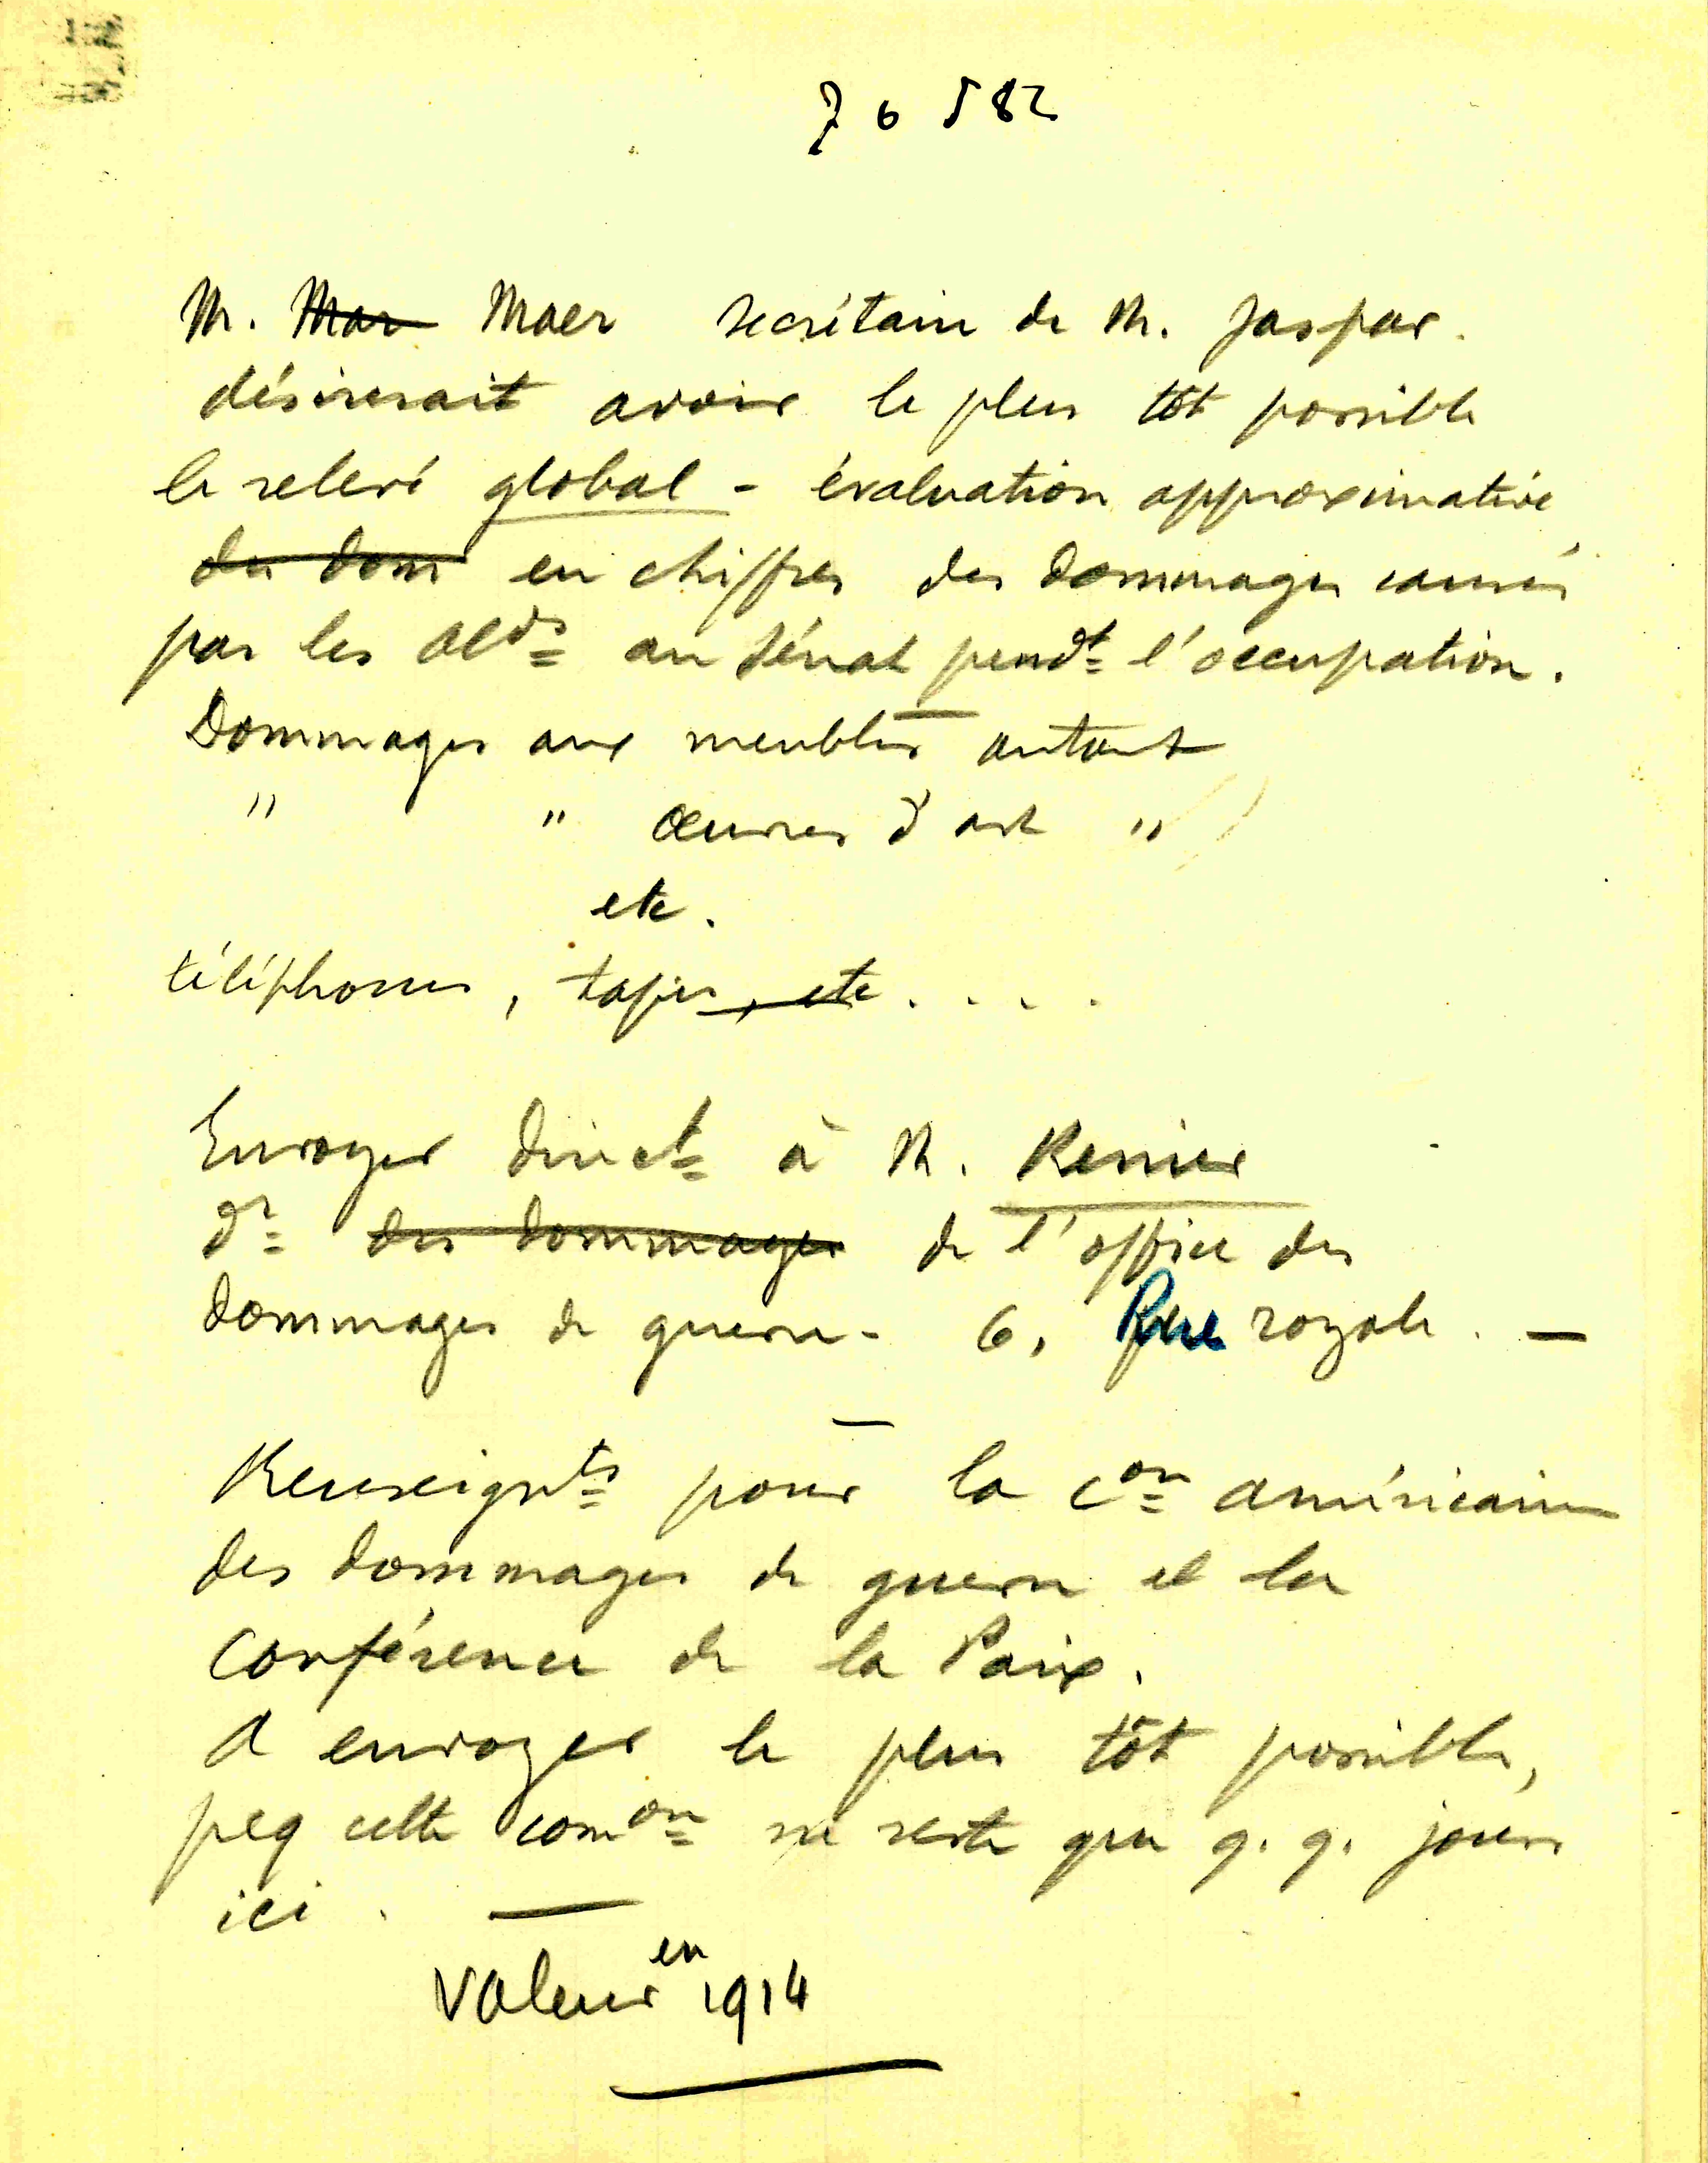 76582
M. ~~Mar~~ Maer secrétaire de M. Jaspar.
désirerait avoir le plus tôt possible
le relevé global - évaluation approximative
~~du dom~~ en chiffres des dommages causés
par les Alds au Sénat pendt l'occupation.
Dommages aux meubles autant
" " œuvres d'art "
etc.
téléphones, tapis, ~~etc~~ . . . .
Envoyer direct à M. Renier
Dr ~~des dommages~~ de l'office des
dommages de guerre - 6, Rue royale. —
Renseignts pour la Con américaine
des dommages de guerre et la
Conférence de la Paix.
A envoyer le plus tôt possible,
pcq cette comon ne reste que q.q. jours
ici. —
Valeur en 1914